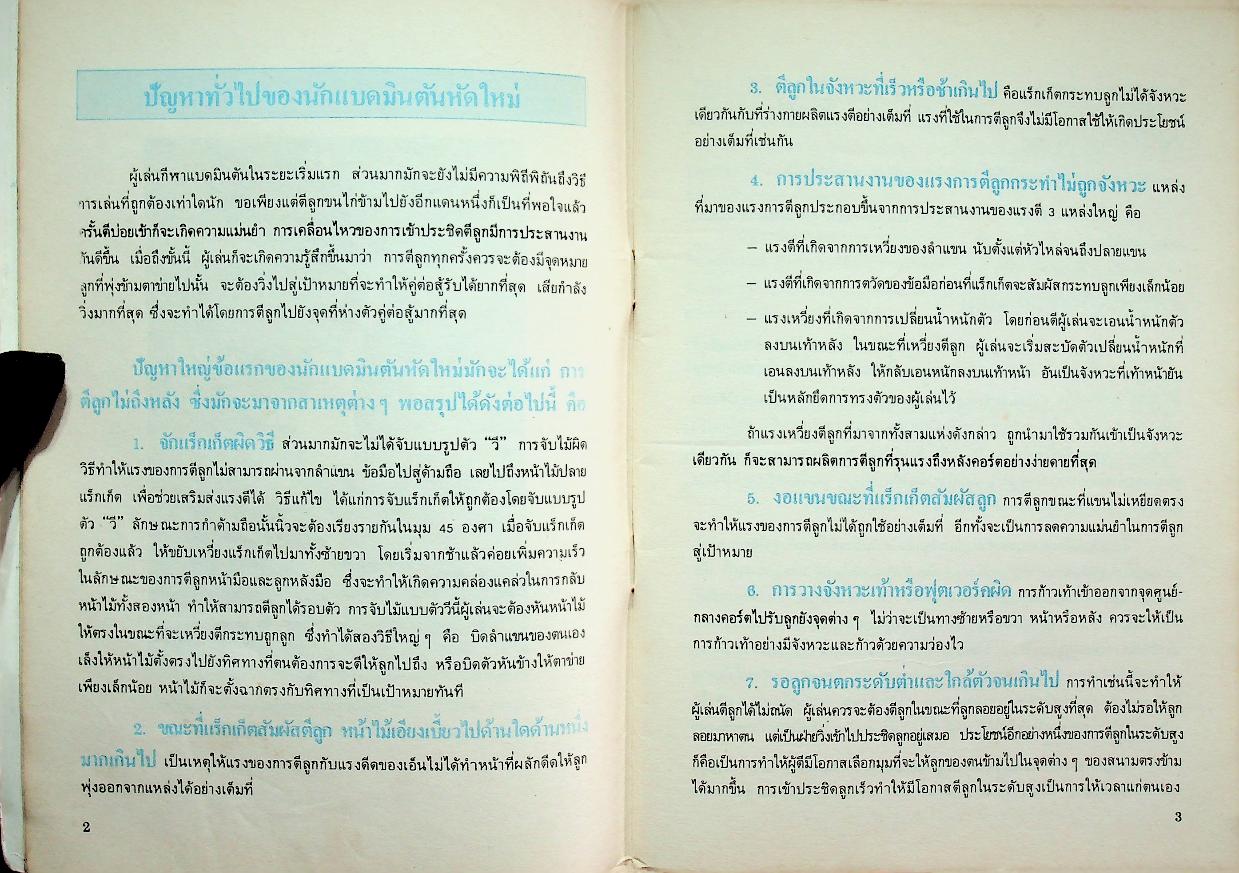 ปัญหาทั่วไปของนักแบดมินตันหัดใหม่
ผู้เล่นกีฬาแบดมินตันในระยะเริ่มแรก ส่วนมากมักจะยังไม่มีความพิถีพิถันถึงวิธี
การเล่นที่ถูกต้องเท่าใดนัก ขอเพียงแต่ตีลูกขนไก่ข้ามไปยังอีกแดนหนึ่งก็เป็นที่พอใจแล้ว
ครั้นตีบ่อยเข้าก็จะเกิดความแม่นยำ การเคลื่อนไหวของการเข้าประชิดตีลูกมีการประสานงาน
กันดีขึ้น เมื่อถึงขั้นนี้ ผู้เล่นก็จะเกิดความรู้สึกขึ้นมาว่า การตีลูกทุกครั้งควรจะต้องมีจุดหมาย
ลูกที่พุ่งข้ามตาข่ายไปนั้น จะต้องวิ่งไปสู่เป้าหมายที่จะทำให้คู่ต่อสู้รับได้ยากที่สุด เสียกำลัง
วิ่งมากที่สุด ซึ่งจะทำได้โดยการตีลูกไปยังจุดที่ห่างตัวคู่ต่อสู้มากที่สุด
ปัญหาใหญ่ข้อแรกของนักแบดมินตันหัดใหม่มักจะได้แก่ การ
ตีลูกไม่ถึงหลัง ซึ่งมักจะมาจากสาเหตุต่างๆ พอสรุปได้ดังต่อไปนี้ คือ
1. จับแร็กเก็ตผิดวิธี ส่วนมากมักจะไม่ได้จับแบบรูปตัว “วี” การจับไม้ผิด
วิธีทำให้แรงของการตีลูกไม่สามารถผ่านจากลำแขน ข้อมือไปสู่ด้ามถือ เลยไปถึงหน้าไม้ปลาย
แร็กเก็ต เพื่อช่วยเสริมส่งแรงตีได้ วิธีแก้ไข ได้แก่การจับแร็กเก็ตให้ถูกต้องโดยจับแบบรูป
ตัว “วี” ลักษณะการกำด้ามถือนั้นนิ้วจะต้องเรียงรายกันในมุม 45 องศา เมื่อจับแร็กเก็ต
ถูกต้องแล้ว ให้ขยับเหวี่ยงแร็กเก็ตไปมาทั้งซ้ายขวา โดยเริ่มจากช้าแล้วค่อยเพิ่มความเร็ว
ในลักษณะของการตีลูกหน้ามือและลูกหลังมือ ซึ่งจะทำให้เกิดความคล่องแคล่วในการกลับ
หน้าไม้ทั้งสองหน้า ทำให้สามารถตีลูกได้รอบตัว การจับไม้แบบตัววีนี้ผู้เล่นจะต้องหันหน้าไม้
ให้ตรงในขณะที่จะเหวี่ยงตีกระทบถูกลูก ซึ่งทำได้สองวิธีใหญ่ๆ คือ บิดลำแขนของตนเอง
เล็งให้หน้าไม้ตั้งตรงไปยังทิศทางที่ตนต้องการจะตีให้ลูกไปถึง หรือบิดตัวหันข้างให้ตาข่าย
เพียงเล็กน้อย หน้าไม้ก็จะตั้งฉากตรงกับทิศทางที่เป็นเป้าหมายทันที
2. ขณะที่แร็กเก็ตสัมผัสตีลูก หน้าไม้เอียงเบี้ยวไปด้านใดด้านหนึ่ง
มากเกินไป เป็นเหตุให้แรงของการตีลูกกับแรงดีดของเอ็นไม่ได้ทำหน้าที่ผลักดีดให้ลูก
พุ่งออกจากแหล่งได้อย่างเต็มที่
2
3. ตีลูกในจังหวะที่เร็วหรือช้าเกินไป คือแร็กเก็ตกระทบลูกไม่ได้จังหวะ
เดียวกันกับที่ร่างกายผลิตแรงตีอย่างเต็มที่ แรงที่ใช้ในการตีลูกจึงไม่มีโอกาสใช้ให้เกิดประโยชน์
อย่างเต็มที่เช่นกัน
4. การประสานงานของแรงการตีลูกกระทำไม่ถูกจังหวะ แหล่ง
ที่มาของแรงการตีลูกประกอบขึ้นจากการประสานงานของแรงตี 3 แหล่งใหญ่ คือ
– แรงตีที่เกิดจากการเหวี่ยงของลำแขน นับตั้งแต่หัวไหล่จนถึงปลายแขน
– แรงตีที่เกิดจากการตวัดของข้อมือก่อนที่แร็กเก็ตจะสัมผัสกระทบลูกเพียงเล็กน้อย
– แรงเหวี่ยงที่เกิดจากการเปลี่ยนน้ำหนักตัว โดยก่อนตีผู้เล่นจะเอนน้ำหนักตัว
ลงบนเท้าหลัง ในขณะที่เหวี่ยงตีลูก ผู้เล่นจะเริ่มสะบัดตัวเปลี่ยนน้ำหนักที่
เอนลงบนเท้าหลัง ให้กลับเอนหนักลงบนเท้าหน้า อันเป็นจังหวะที่เท้าหน้ายัน
เป็นหลักยึดการทรงตัวของผู้เล่นไว้
ถ้าแรงเหวี่ยงตีลูกที่มาจากทั้งสามแห่งดังกล่าว ถูกนำมาใช้รวมกันเข้าเป็นจังหวะ
เดียวกัน ก็จะสามารถผลิตการตีลูกที่รุนแรงถึงหลังคอร์ตอย่างง่ายดายที่สุด
5. งอแขนขณะที่แร็กเก็ตสัมผัสลูก การตีลูกขณะที่แขนไม่เหยียดตรง
จะทำให้แรงของการตีลูกไม่ได้ถูกใช้อย่างเต็มที่ อีกทั้งจะเป็นการลดความแม่นยำในการตีลูก
สู่เป้าหมาย
6. การวางจังหวะเท้าหรือฟุตเวอร์คผิด การก้าวเท้าเข้าออกจากจุดศูนย์-
กลางคอร์ตไปรับลูกยังจุดต่างๆ ไม่ว่าจะเป็นทางซ้ายหรือขวา หน้าหรือหลัง ควรจะให้เป็น
การก้าวเท้าอย่างมีจังหวะและก้าวด้วยความว่องไว
7. รอลูกจนตกระดับต่ำและใกล้ตัวจนเกินไป การทำเช่นนี้จะทำให้
ผู้เล่นตีลูกได้ไม่ถนัด ผู้เล่นควรจะต้องตีลูกในขณะที่ลูกลอยอยู่ในระดับสูงที่สุด ต้องไม่รอให้ลูก
ลอยมาหาตน แต่เป็นฝ่ายวิ่งเข้าไปประชิดลูกอยู่เสมอ ประโยชน์อีกอย่างหนึ่งของการตีลูกในระดับสูง
ก็คือเป็นการทำให้ผู้ตีมีโอกาสเลือกมุมที่จะให้ลูกของตนข้ามไปในจุดต่างๆ ของสนามตรงข้าม
ได้มากขึ้น การเข้าประชิดลูกเร็วทำให้มีโอกาสตีลูกในระดับสูงเป็นการให้เวลาแก่ตนเอง
3